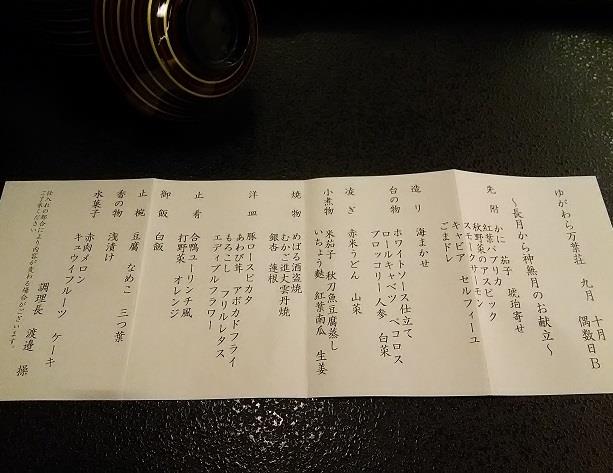 ゆがわら万葉荘 九月 十月
偶数日B
～長月から神無月のお献立～
先附 かに 茄子 琥珀寄せ
紅葉パプリカ
秋野菜のアスピック
スモークサーモン
キャビア セルフィーユ
ごまドレ
造り 海まかせ
台の物 ホワイトソース仕立て
ロールキャベツ ペコロス
ブロッコリー 人参 白菜
凌ぎ 赤米うどん 山菜
小煮物 米茄子 秋刀魚豆腐蒸し
いちょう麩 紅葉南瓜 生姜
焼物 めばる酒盗焼
むかご進大雲丹焼
銀杏 蓮根
洋皿 豚ロースピカタ
あわび茸 アボカドフライ
もろこし フリルレタス
エディブルフラワー
止肴 合鴨ユーリンチ風
打野菜 オレンジ
御飯 白飯
止椀 豆腐 なめこ 三つ葉
香の物 浅漬け
水菓子 赤肉メロン
キュウイフルーツ ケーキ
調理長 渡邉 操
仕入れの都合により内容が変わる場合がございます。
ご了承ください。